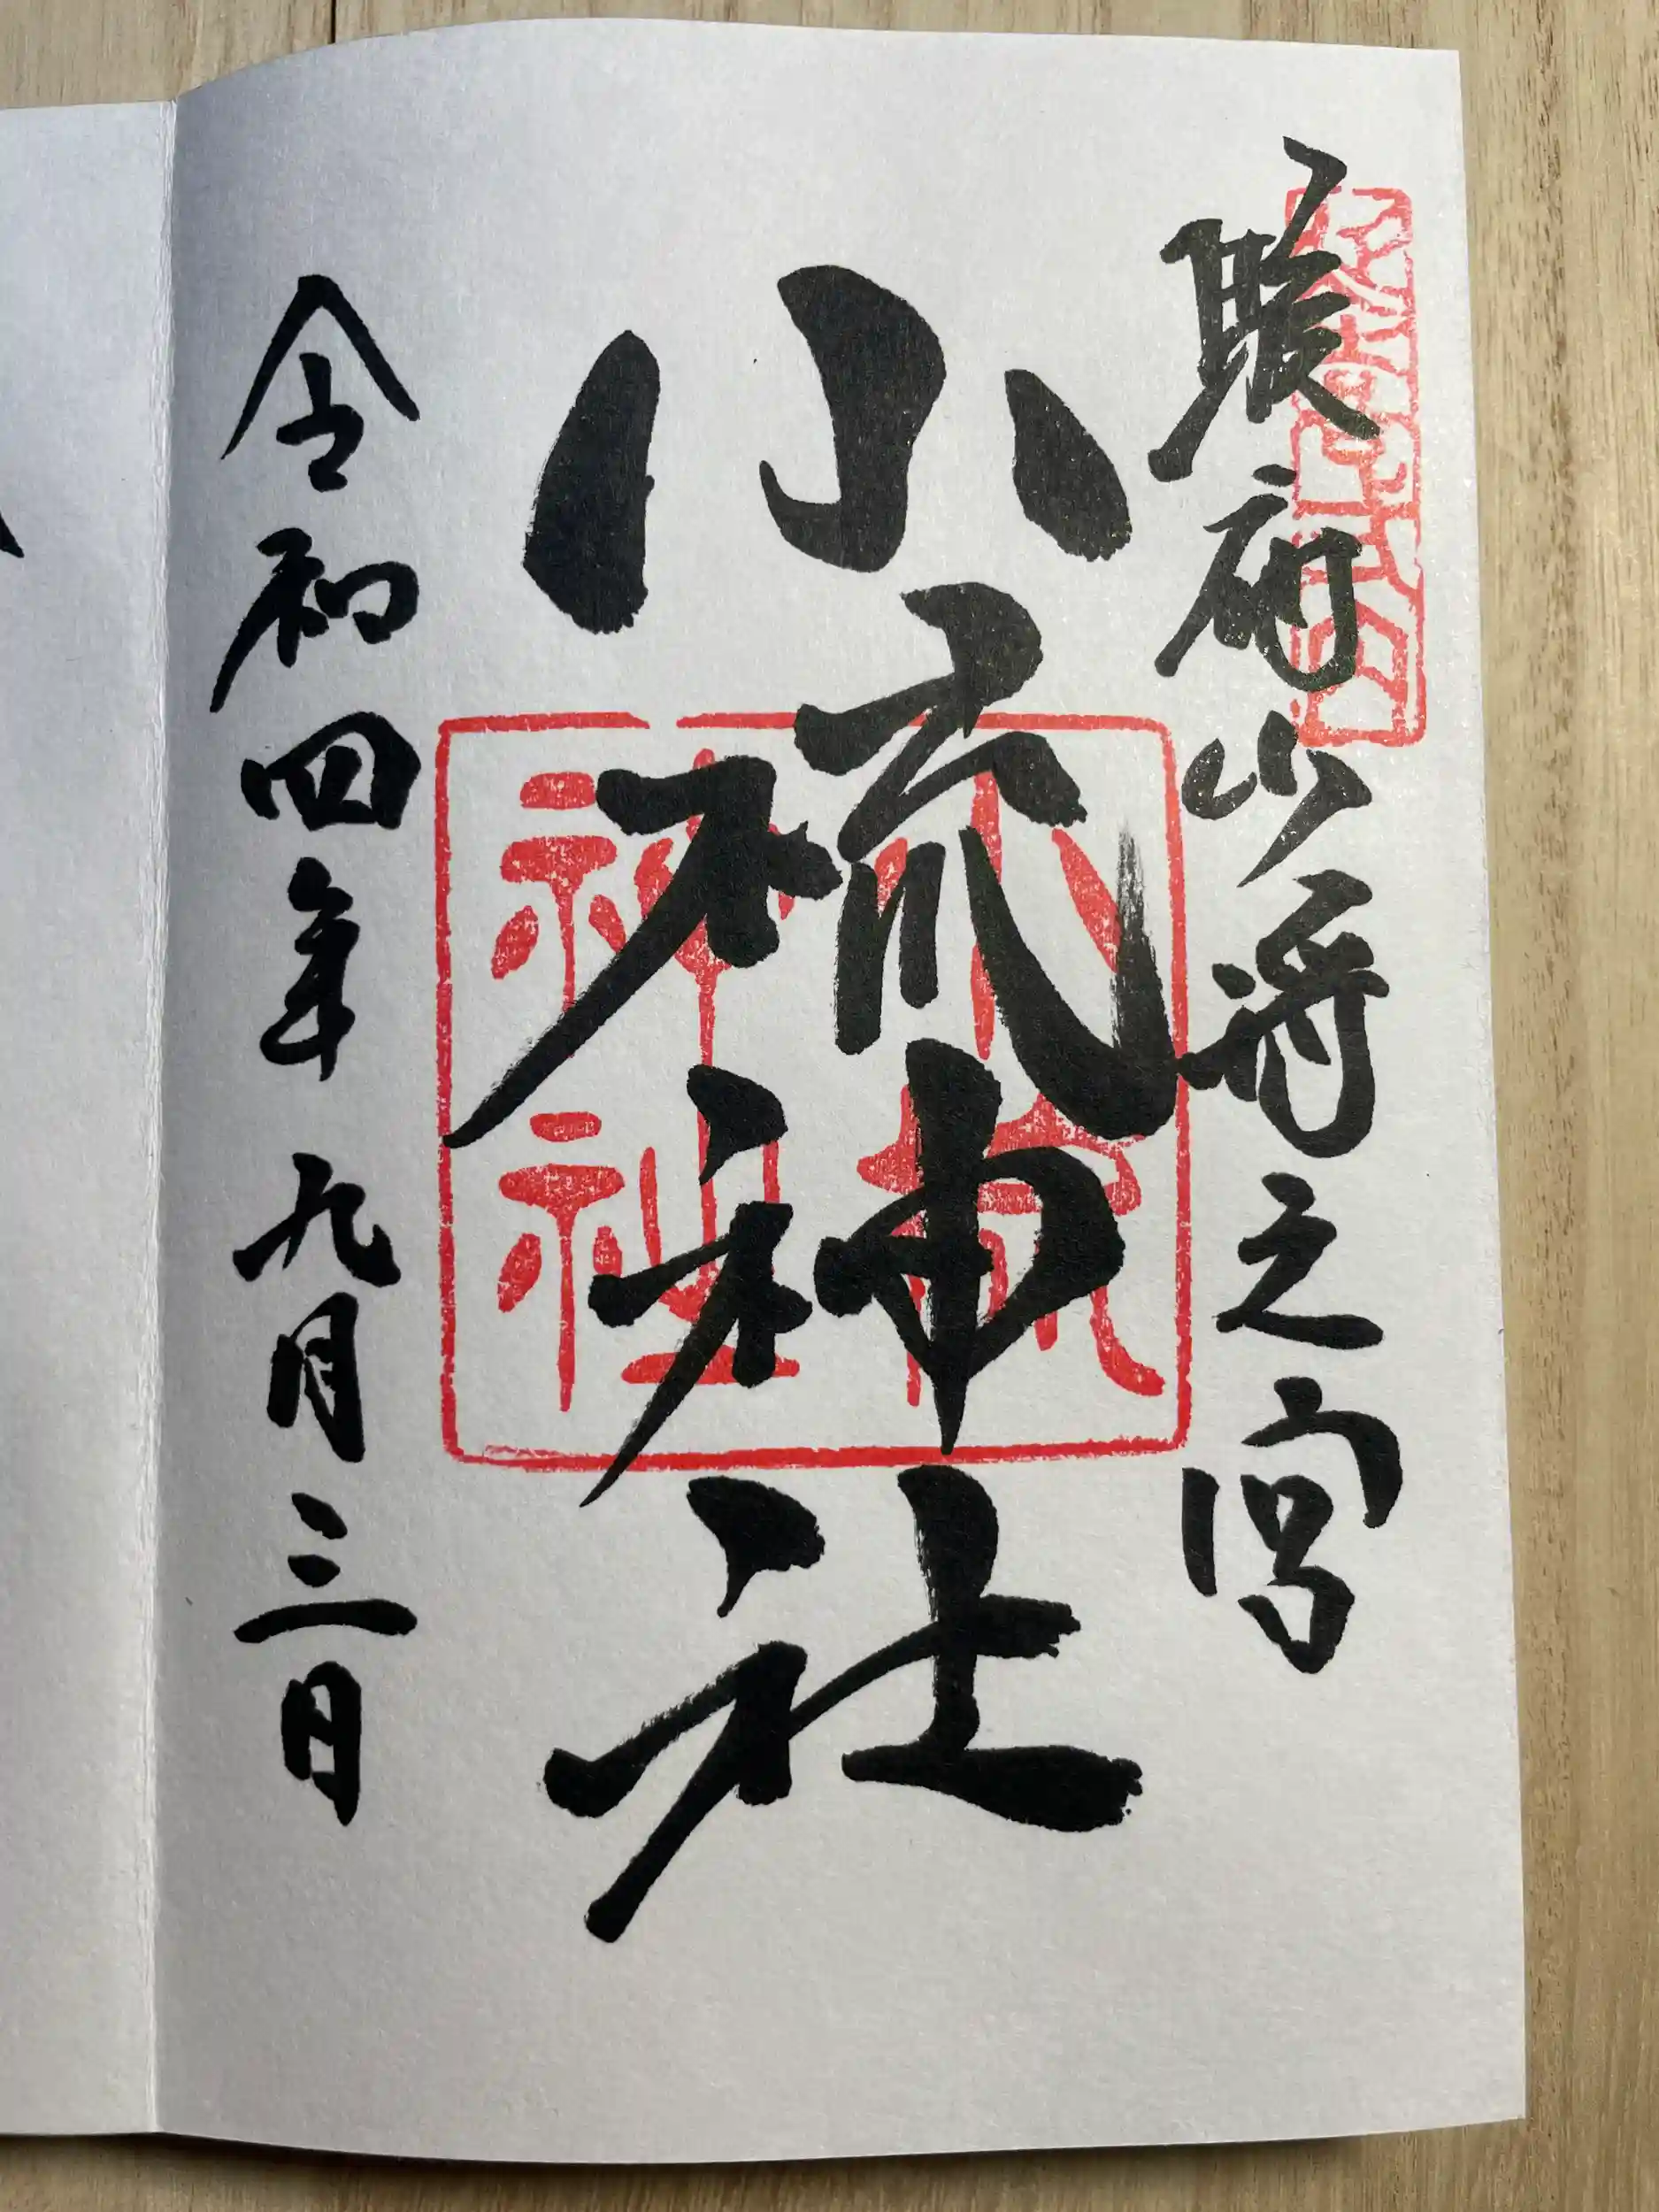 駿府少将之宮
小梳神社
小梳
神社
令和四年九月三日